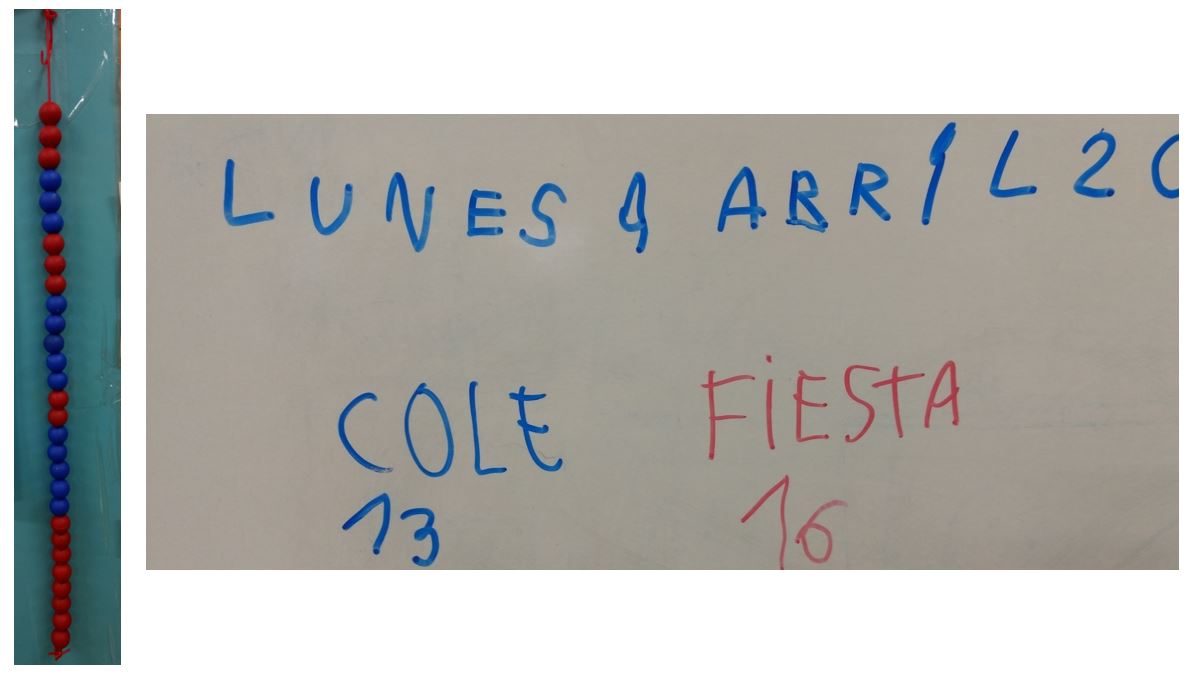 LUNES 4 ABRIL 20
COLE FIESTA
13 16